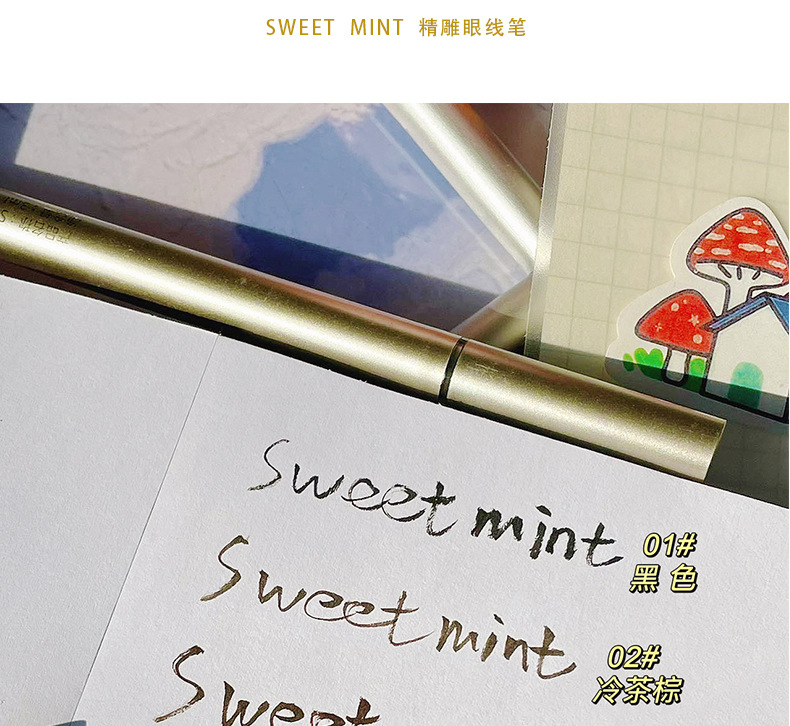 SWEET MINT 精雕眼线笔
Sweet mint
01#
黑色
Sweet mint
02#
冷茶棕
Sweet